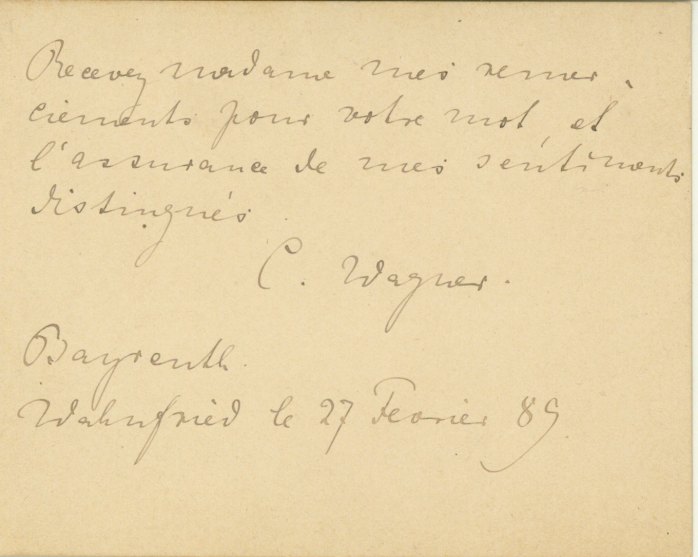 Recevez madame mes remer-
ciements pour votre mot, et
l'assurance de mes sentiments
distingués.
C. Wagner.
Bayreuth.
Wahnfried le 27 Fevrier 89